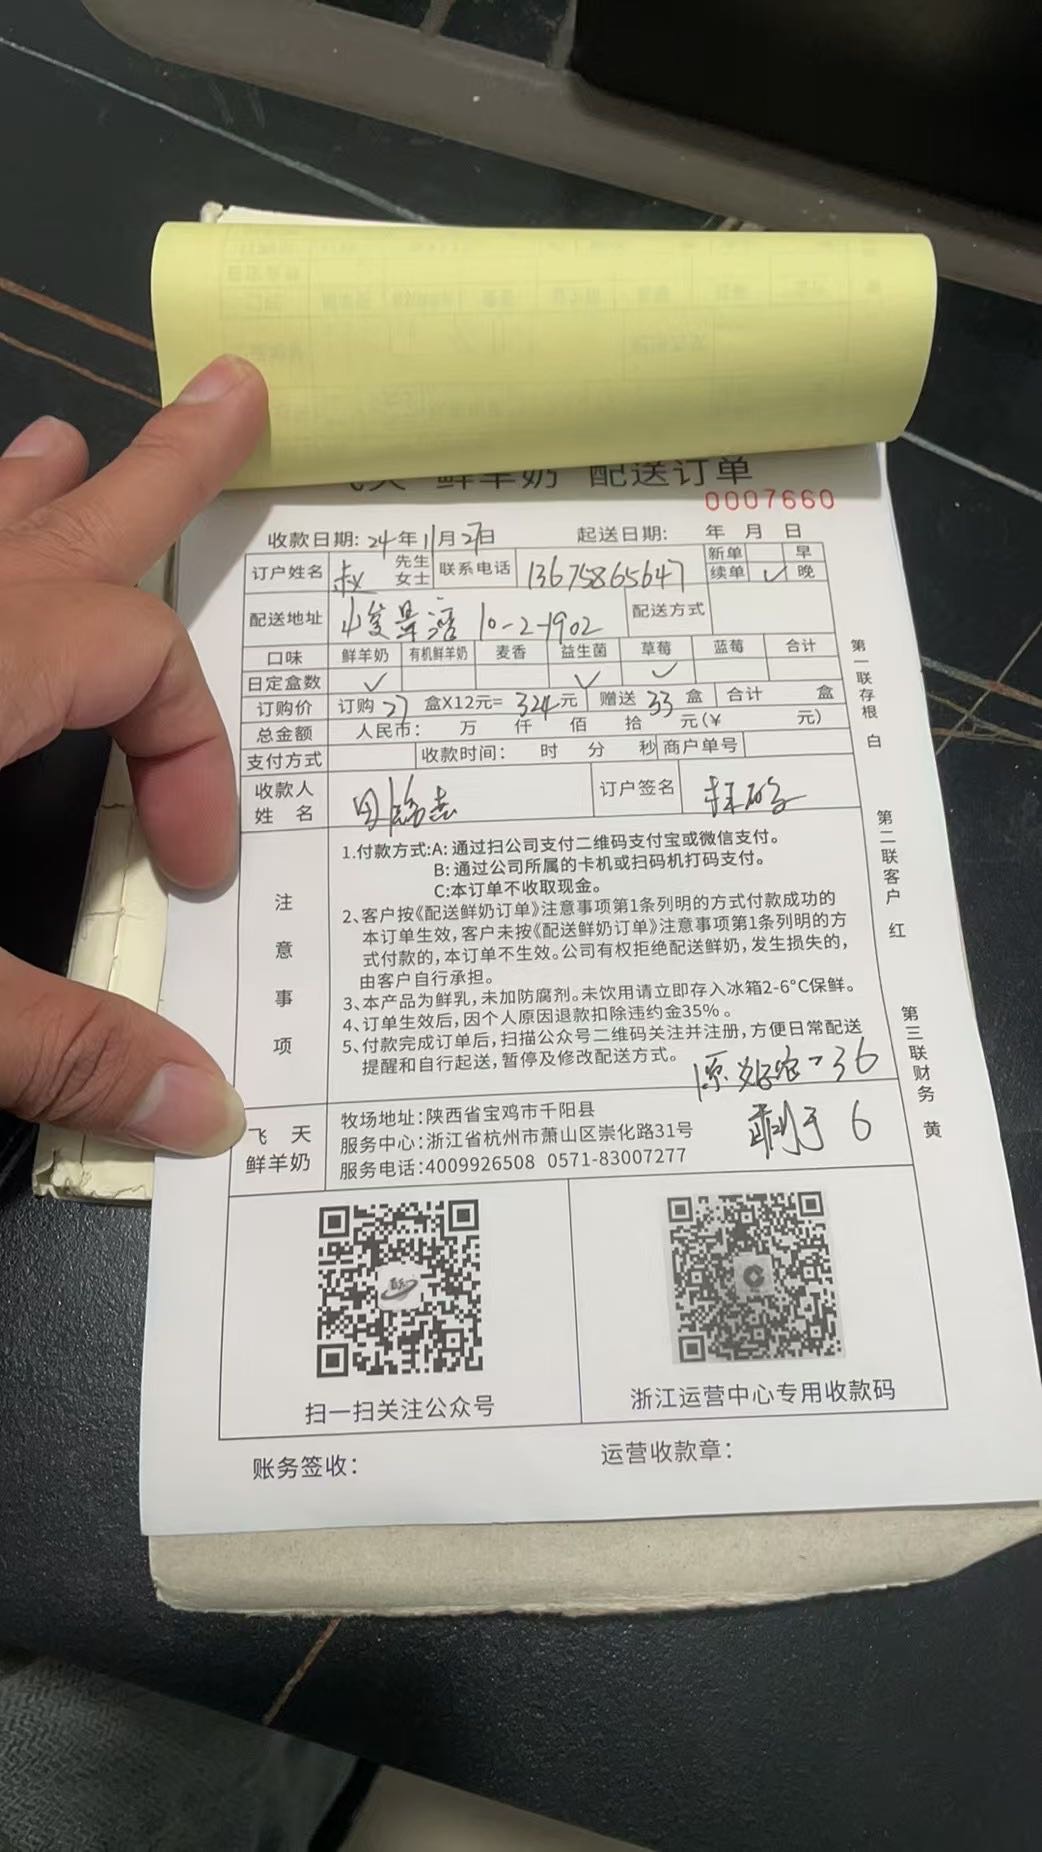 鲜羊奶 配送订单
0007660
收款日期: 24年11月27日 起送日期: 年 月 日
订户姓名 先生 女士 联系电话 13675865647 新单 早
续单 ✓ 晚
配送地址 峻景湾 10-2-1902 配送方式
口味 鲜羊奶 有机鲜羊奶 麦香 益生菌 草莓 蓝莓 合计
日定盒数 ✓ ✓ ✓
订购价 订购 27 盒X12元= 324 元 赠送 33 盒 合计 盒
总金额 人民币: 万 仟 佰 拾 元(¥ 元)
支付方式 收款时间: 时 分 秒 商户单号
收款人姓名 订户签名
注意事项
1.付款方式:A: 通过扫公司支付二维码支付宝或微信支付。
B: 通过公司所属的卡机或扫码机打码支付。
C:本订单不收取现金。
2、客户按《配送鲜奶订单》注意事项第1条列明的方式付款成功的
本订单生效,客户未按《配送鲜奶订单》注意事项第1条列明的方
式付款的,本订单不生效。公司有权拒绝配送鲜奶,发生损失的,
由客户自行承担。
3、本产品为鲜乳,未加防腐剂。未饮用请立即存入冰箱2-6°C保鲜。
4、订单生效后,因个人原因退款扣除违约金35%。
5、付款完成订单后,扫描公众号二维码关注并注册,方便日常配送
提醒和自行起送,暂停及修改配送方式。
36
6
飞天
鲜羊奶
牧场地址:陕西省宝鸡市千阳县
服务中心:浙江省杭州市萧山区崇化路31号
服务电话:4009926508 0571-83007277
扫一扫关注公众号
浙江运营中心专用收款码
账务签收:
运营收款章:
第一联存根 白
第二联客户 红
第三联财务 黄